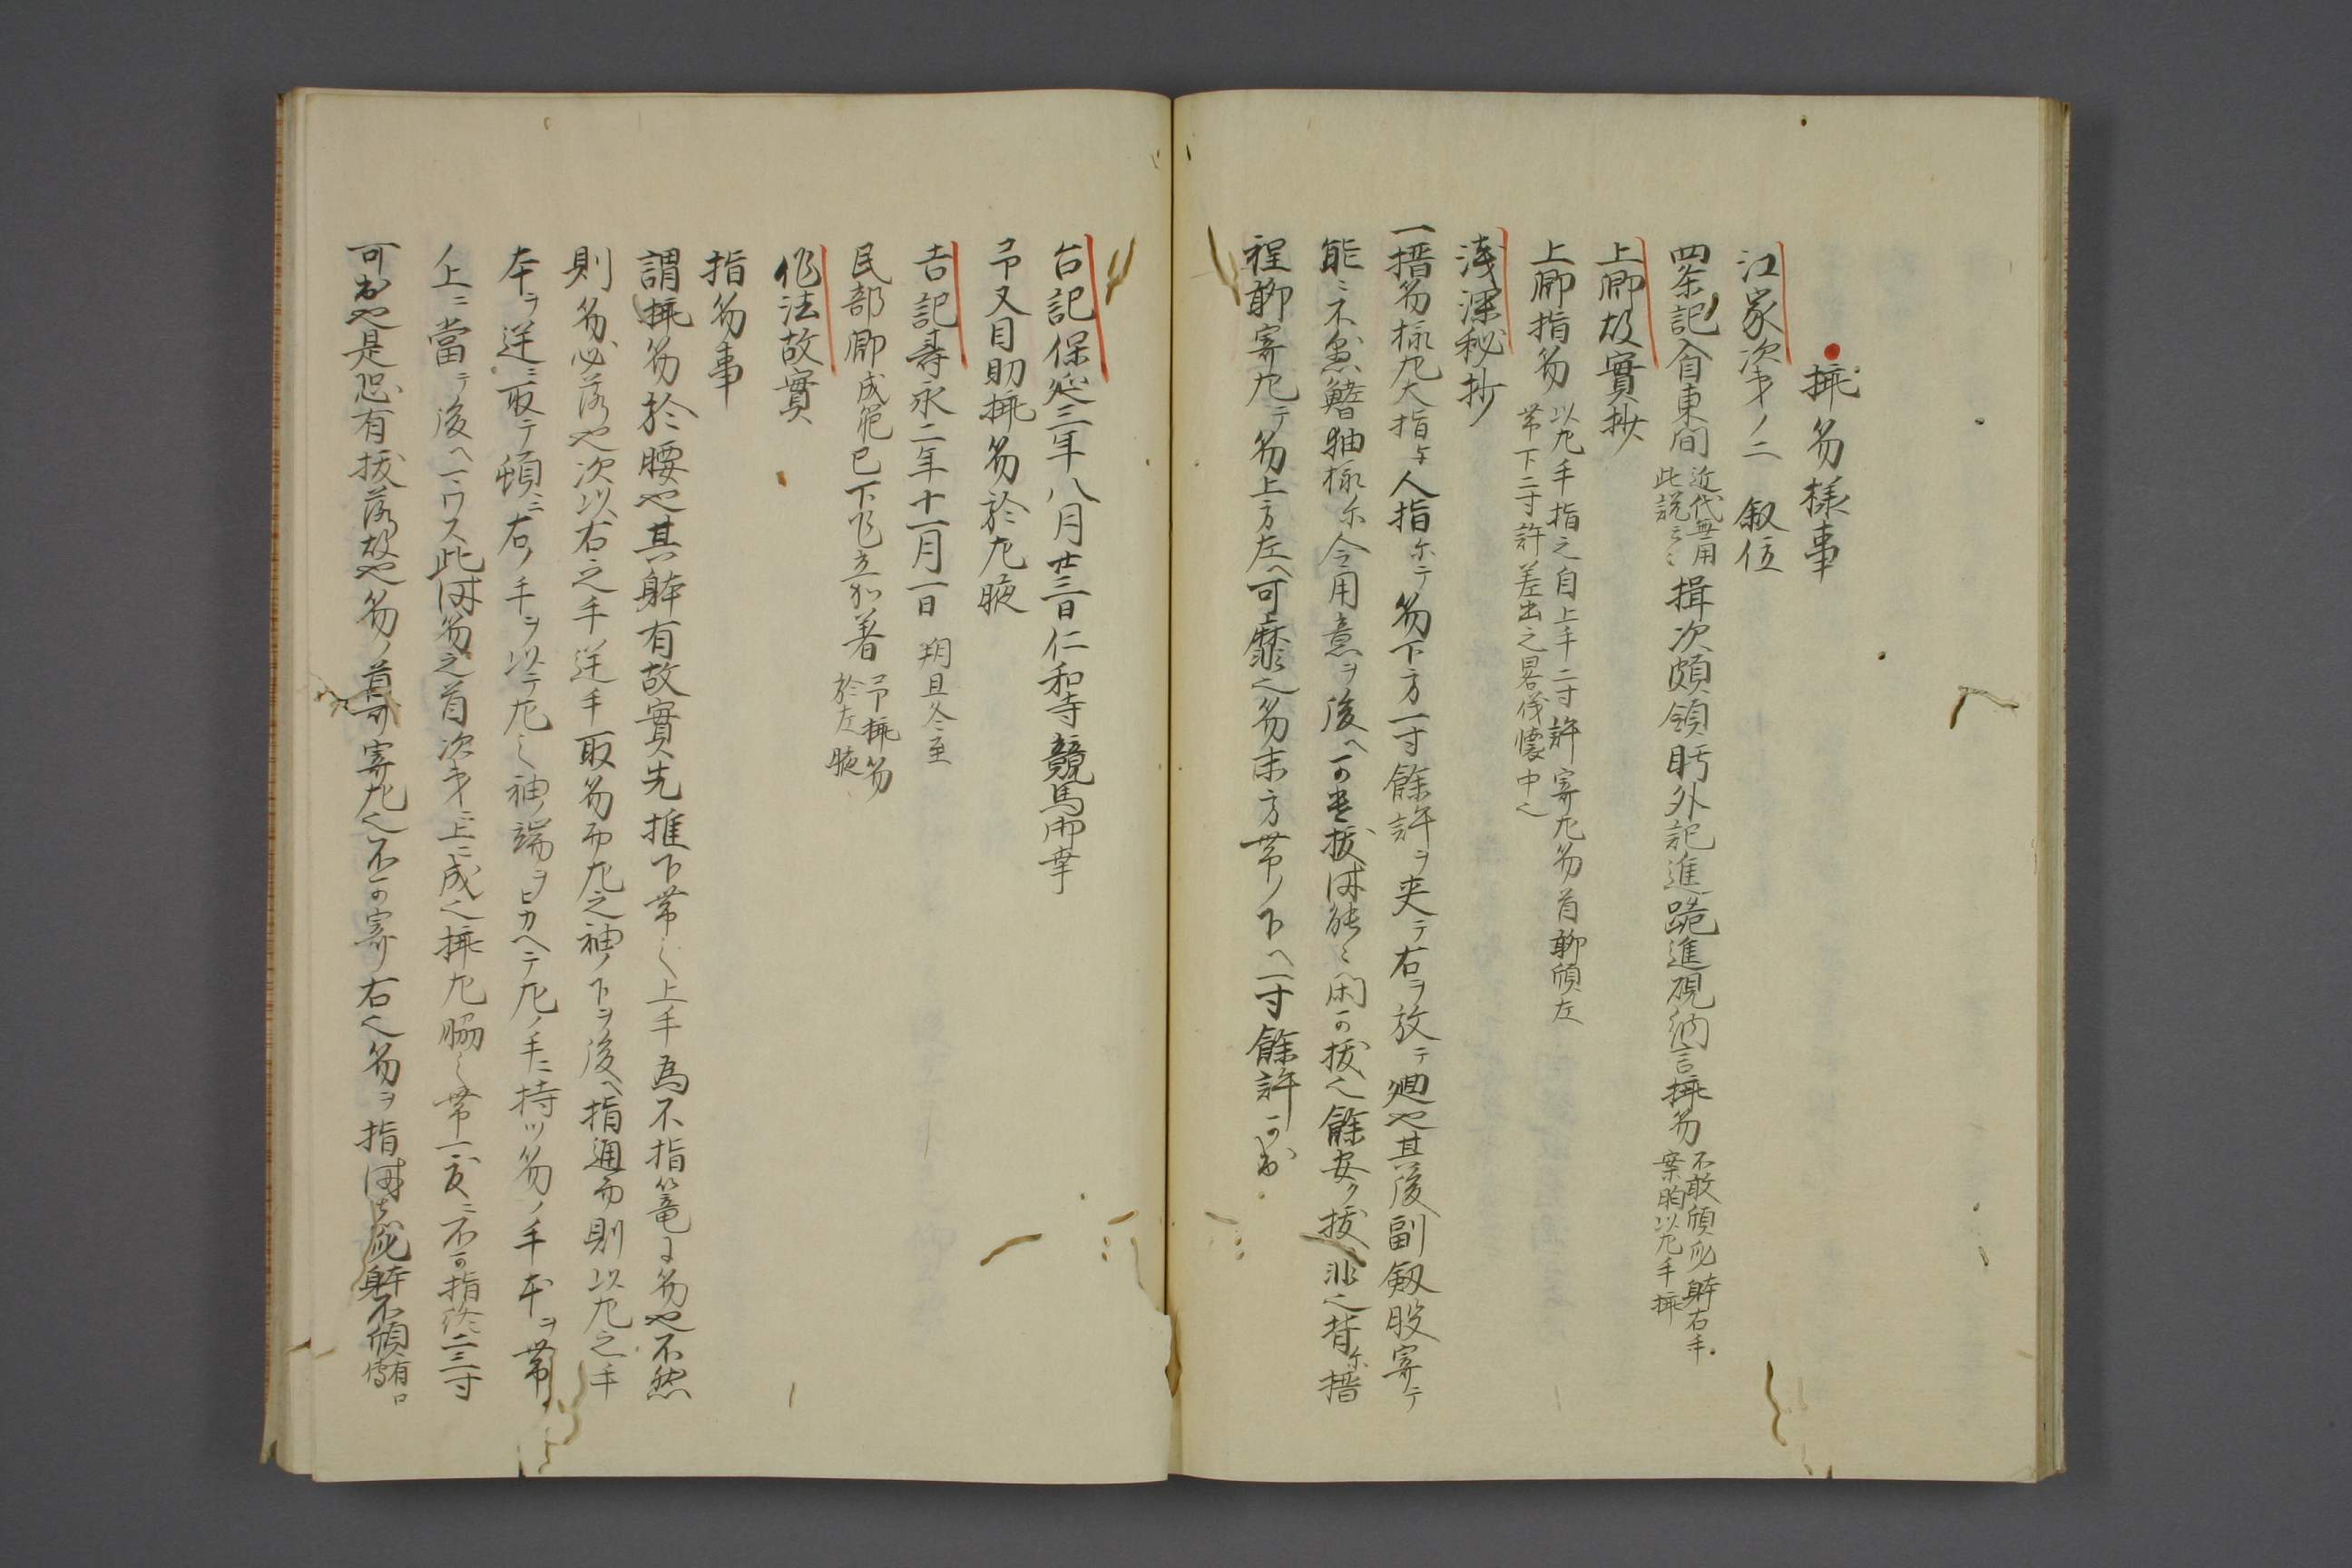 挿笏様事
江家次第ノ二　叙位
四条記入自東間近代無用此説云々揖次頗領眄外記進跪進硯納言挿笏不敢傾身右手案眴以左手挿
上卿故實抄
上卿指笏以左手指之自上手二寸許寄左笏首聊傾左帯下二寸許差出之畧儀懐中之
浅深秘抄
一搢笏様左大指与人指尓テ笏下方一寸餘許ヲ夾テ右ヲ放テ廻也其後副剱股寄テ
能々不急鰭袖様尓令用意ヲ後ヘ可抜能々閑可抜之餘安ク抜ハ非也背尓搢
程聊寄左テ笏上方左ヘ可靡之笏末方帯ノ下ヘ一寸餘許可出
台記保延三年八月廿三日仁和寺競馬御幸
予又目助挿笏於左腋
吉記壽永二年十一月一日　朔旦冬至
民部卿成範已下起立加着予挿笏於左腋
作法故實
指笏事
謂挿笏於腰也其躰有故實先推下帯之上手為不指篭于笏也不然
則笏必落也次以右之手逆手取笏而左之袖ノ下ヲ後ヘ指通而則以左之手
本ヲ逆ニ取テ頓ニ右ノ手ヲ以テ左之袖端ヲヒカヘテ左ノ手ニ持ツ笏ノ手本ヲ帯ノ
上ニ當テ後ヘマワス此時笏之首次第ニ上ニ成之挿左脇之帯一度ニ不可指終二三寸
可出也是恐有抜落故也笏ノ首可寄左之不可寄右之笏ヲ指時身躰不傾有口傳